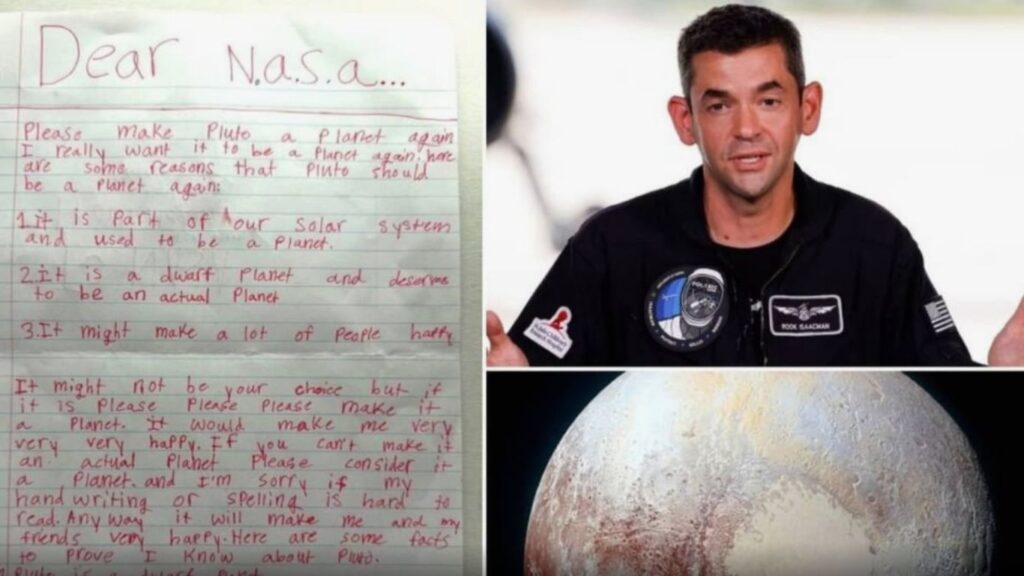 Dear N.a.s.a...
Please make Pluto a Planet again
I really want it to be a Planet again. here
are some reasons that Pluto should
be a Planet again:
1.it is Part of our solar system
and used to be a Planet.
2.It is a dwarf Planet and deserve
to be an actual Planet
3.It might make a lot of People happy
It might not be your choice but if
it is Please Please Please make it
a Planet. It would make me very
very very happy. If you can't make it
an actual Planet Please consider it
a Planet. and I'm sorry if my
hand writing or spelling is hard to
read. Any way it will make me and my
friends very happy. Here are some facts
to prove I know about Pluto.
Pluto is a dwarf
POLARIS
ROOK ISAACMAN